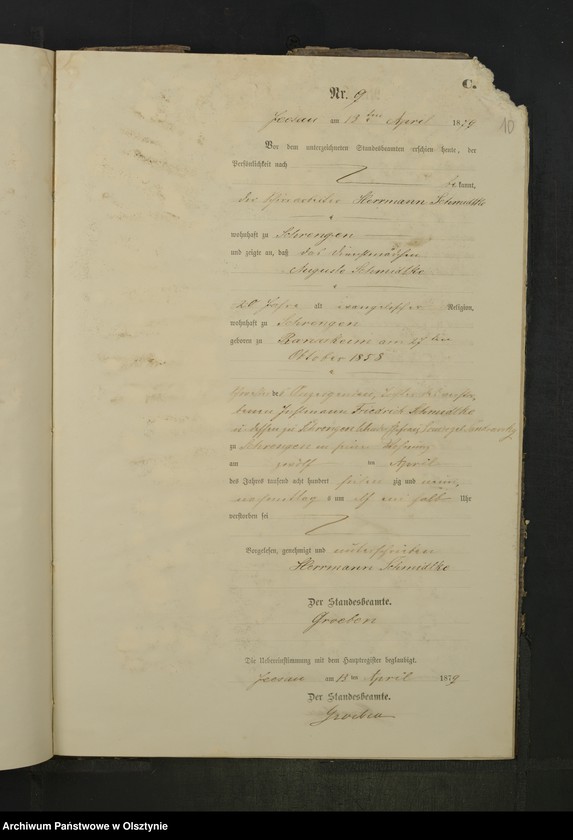 C.
Nr. 9
10
Jeesau am 13 ten April 1879
Vor dem unterzeichneten Standesbeamten erschien heute, der
Persönlichkeit nach
bekannt,
der Herrmann Schmidtke
wohnhaft zu Schrengen
und zeigte an, daß das Dienstmädchen
Auguste Schmidtke
20 Jahre alt evangelischer Religion,
wohnhaft zu Schrengen
geboren zu am ten
Oktober 1858
Schwester des Anzeigenden, Tochter des verstor-
benen Instmann Friedrich Schmidtke
u. dessen zu Schrengen
zu Schrengen in seiner Wohnung
am zwölf ten April
des Jahres tausend acht hundert sieben zig und neun,
nachmittag s um elf ein halb Uhr
verstorben sei
Vorgelesen, genehmigt und unterschrieben
Herrmann Schmidtke
Der Standesbeamte.
Groeben
Die Uebereinstimmung mit dem Hauptregister beglaubigt.
Jeesau am 13 ten April 1879
Der Standesbeamte.
Groeben
Archiwum Państwowe w Olsztynie